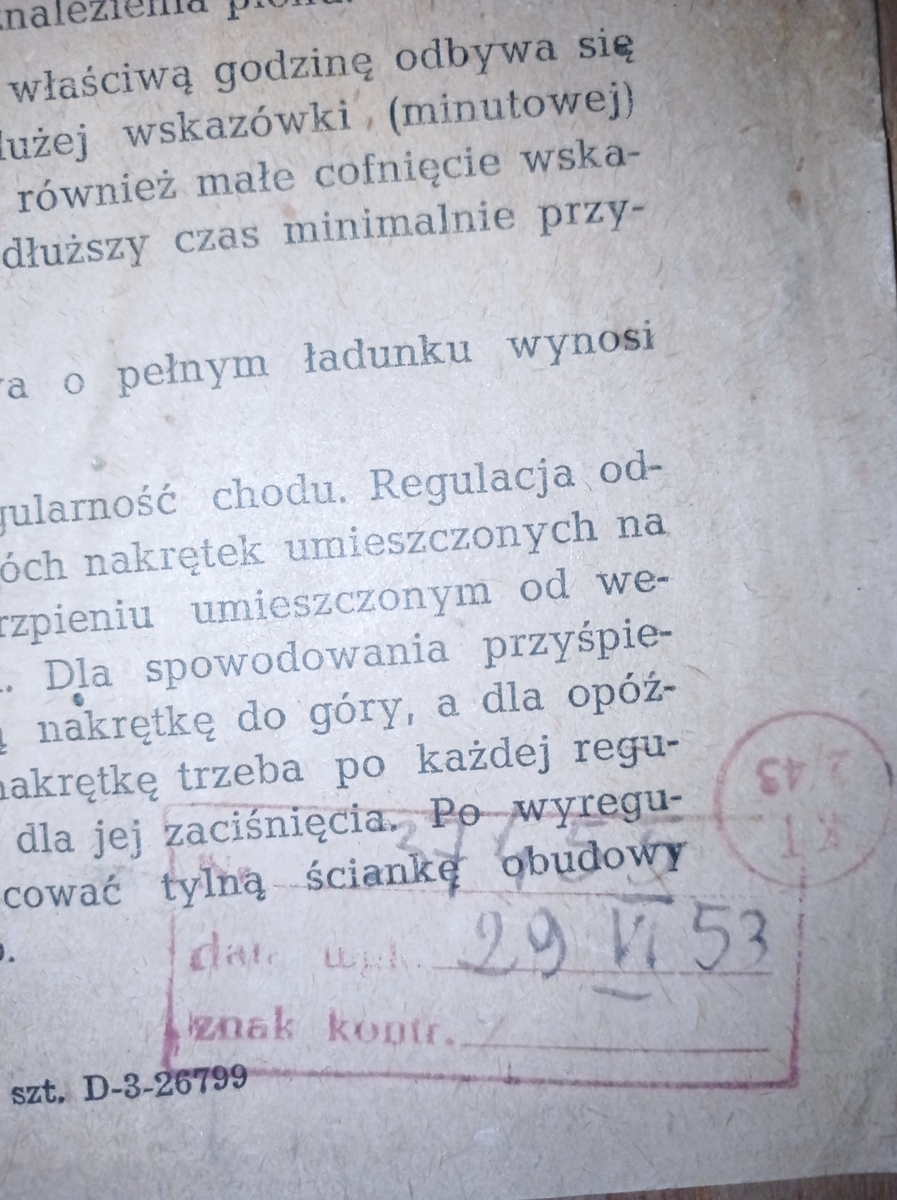 znalezienia pionu.
właściwą godzinę odbywa się
dłużej wskazówki (minutowej)
również małe cofnięcie wska-
dłuższy czas minimalnie przy-
o pełnym ładunku wynosi
gularność chodu. Regulacja od-
óch nakrętek umieszczonych na
rzpieniu umieszczonym od we-
Dla spowodowania przyśpie-
nakrętkę do góry, a dla opóź-
nakrętkę trzeba po każdej regu-
dla jej zaciśnięcia. Po wyregu-
cować tylną ściankę obudowy
29 VI 53
znak kontr.
szt. D-3-26799
KT